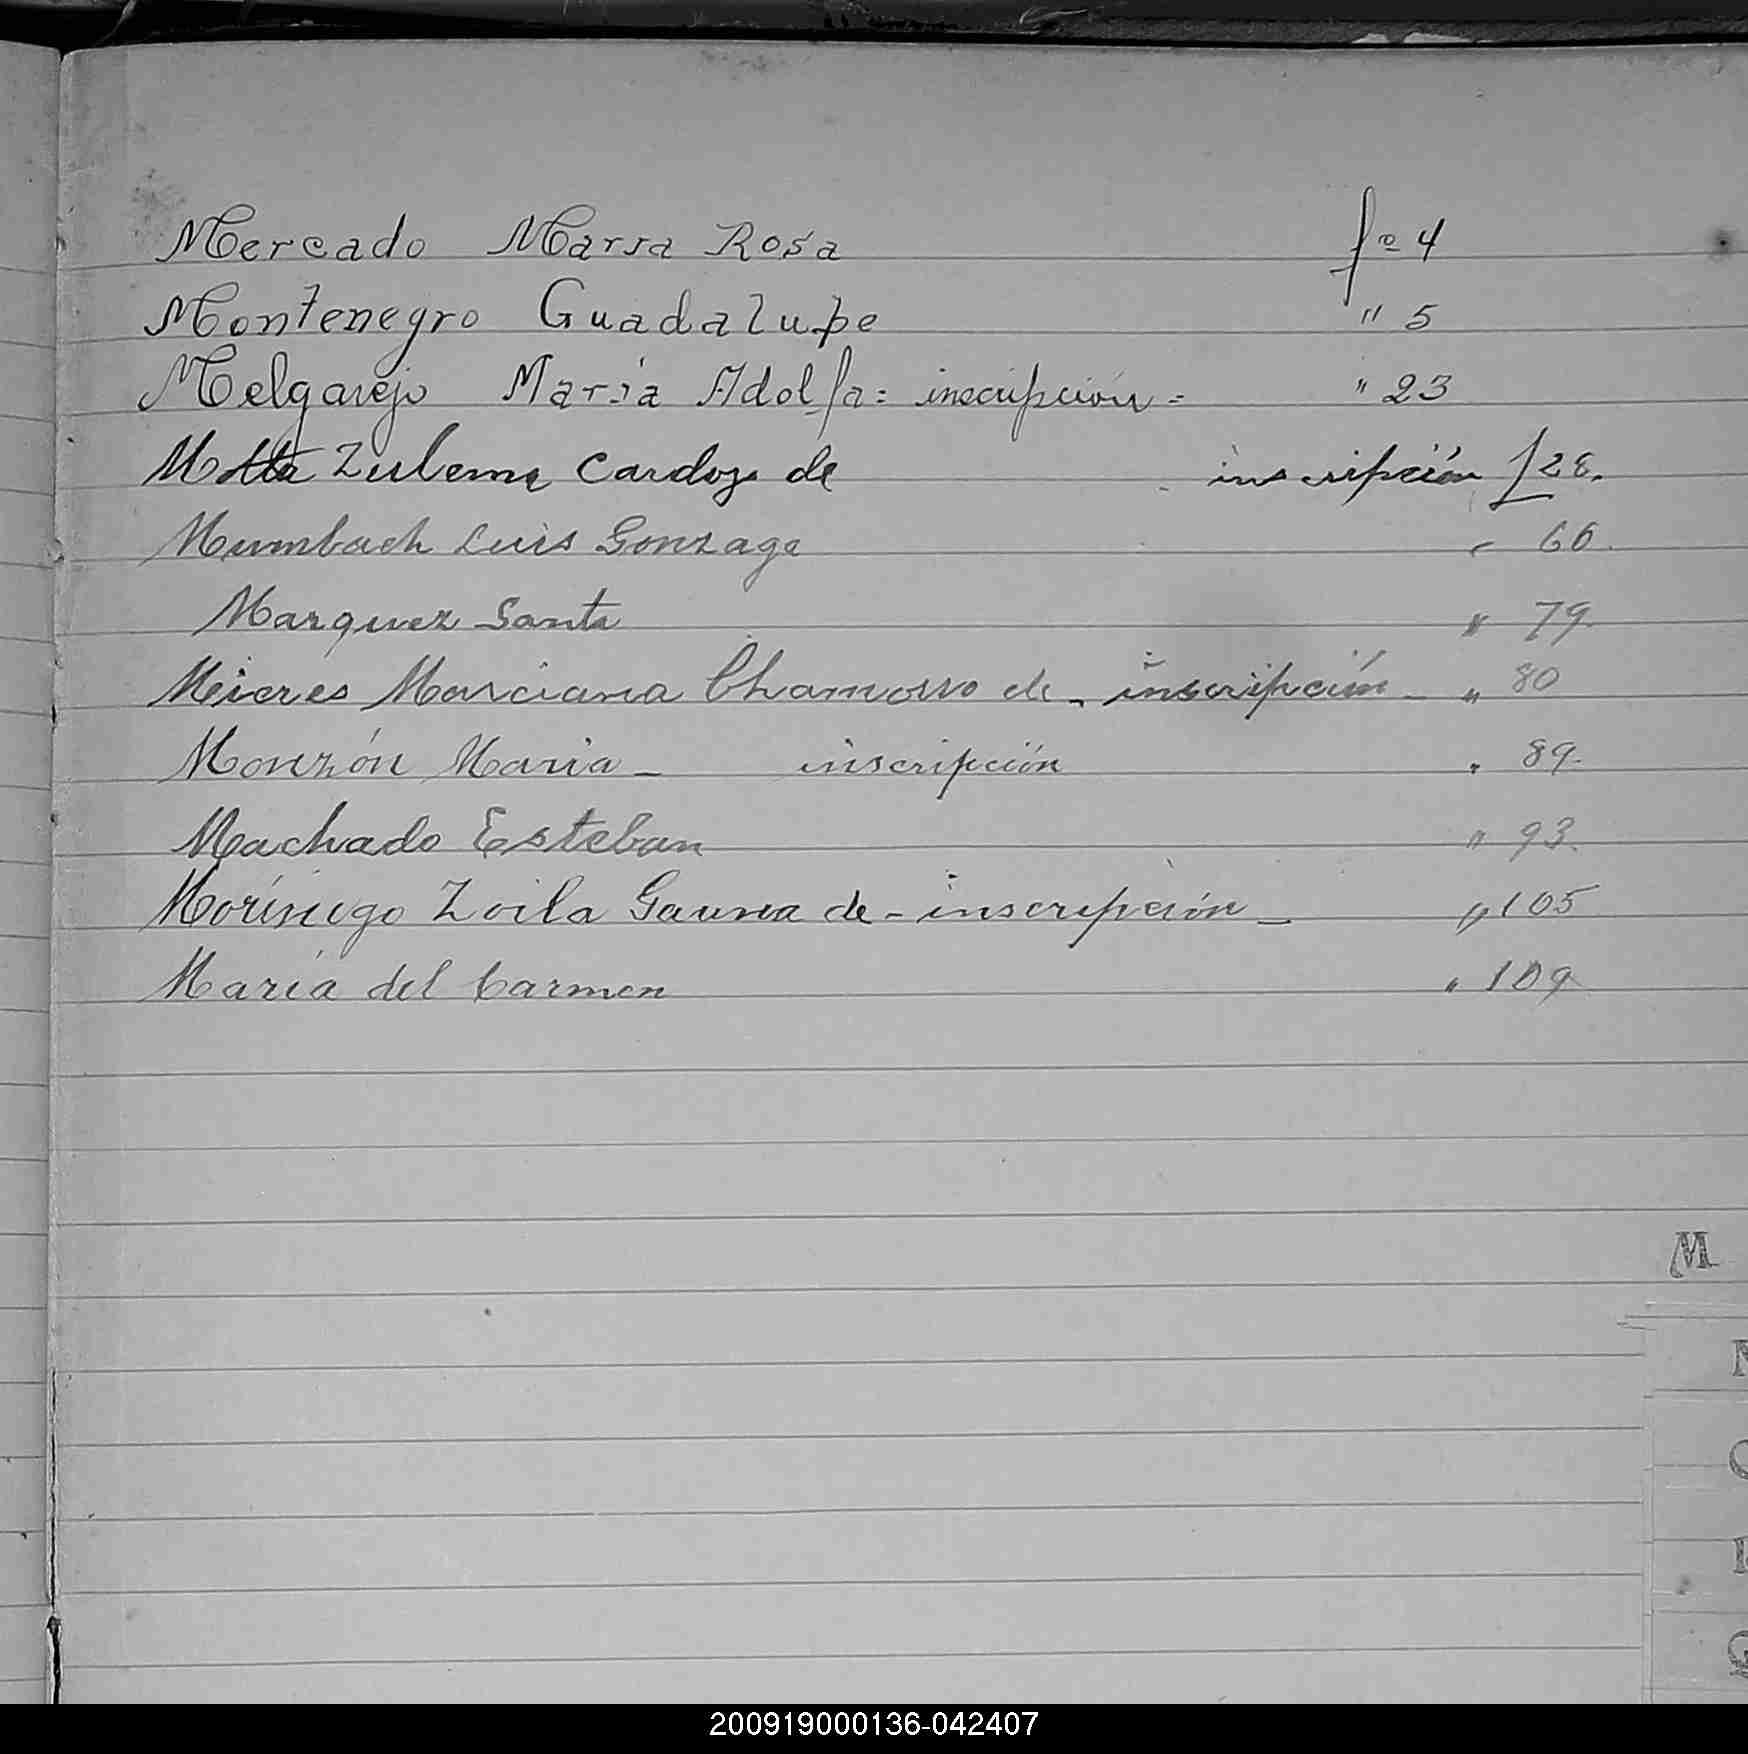 Mercado Maria Rosa fº 4
Montenegro Guadalupe " 5
Melgarejo María Adolfa = inscripción = " 23
Motta Zulema Cardozo de inscripción f 28.
Mumbach Luis Gonzaga " 66.
Marquez Santa " 79.
Meieres Marciana Chamorro de - inscripción - " 80
Monzón Maria - inscripción " 89.
Machado Esteban " 93.
Morínigo Zoila Gauna de - inscripción - " 105
María del Carmen " 109
M
N
O
Q
200919000136-042407